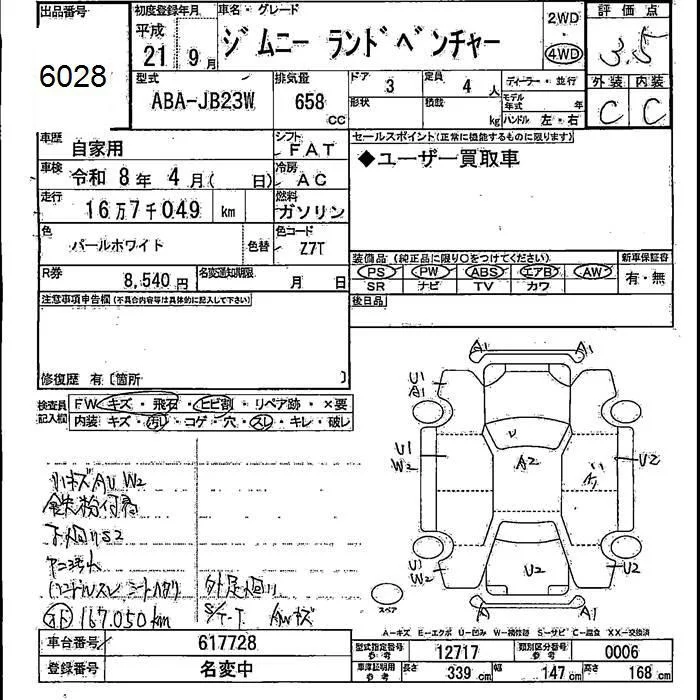 出品番号
6028
初度登録年月
平成
21 9月
車名・グレード
ジムニー ランドベンチャー
2WD
・
4WD
評価点
3.5
外装 内装
C C
型式
ABA-JB23W
排気量
658 CC
ドア 3
形状
定員 4 人
積載 kg
ディーラー・並行
モデル年式 年
ハンドル 左・右
車歴
自家用
シフト
FAT
車検
令和 8年 4月( 日)
冷房
AC
走行
16万7千049 km
燃料
ガソリン
色
パールホワイト
色替
色コード
Z7T
R券
8,540円
名変通知期限
月 日
セールスポイント(正常に機能するものに限ります)
◆ユーザー買取車
装備品(純正品に限り○をつけてください)
PS PW ABS エアB AW
SR ナビ TV カワ
新車保証書
有・無
後日品
注意事項申告欄(不具合内容等は具体的に記入して下さい)
修復歴 有〔箇所 〕
検査員記入欄
FW キズ・飛石・ヒビ割・リペア跡・×要
内装 キズ・汚レ・コゲ・穴・スレ・キレ・破レ
小キズAU W2
鉄粉付着
下廻りS2
ハンドルスレ シートハゲ
167,050km
外足廻り
S/T-T. AWキズ
A1 A1
U1
A1
U1
W2
A2
U2
U1
W2
U2
U2
A1 A1
スペア
A-キズ E-エクボ U-凹み W-補修跡 S-サビ C-腐食 XX-交換済
車台番号
617728
登録番号
名変中
型式指定番号
参考
12717
類別区分番号
参考
0006
車庫証明用
参考
長さ 339 cm 幅 147 cm 高さ 168 cm